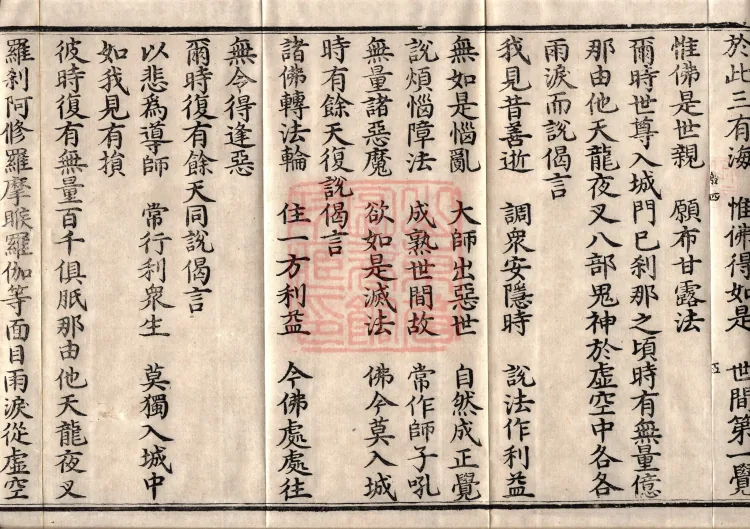 於此三有海　惟佛得如是　世間第一覺
惟佛是世親　願布甘露法
爾時世尊入城門已剎那之頃時有無量億
那由他天龍夜叉八部鬼神於虛空中各各
雨淚而說偈言
我見昔善逝　調衆安隱時　說法作利益
無如是惱亂　大師出惡世　自然成正覺
說煩惱障法　成熟世間故　常作師子吼
無量諸惡魔　欲如是滅法　佛今莫入城
時有餘天復說偈言
諸佛轉法輪　住一方利益　今佛處處往
無令得逢惡
爾時復有餘天同說偈言
以悲為導師　常行利衆生　莫獨入城中
如我見有損
彼時復有無量百千俱胝那由他天龍夜叉
羅剎阿修羅摩睺羅伽等面目雨淚從虛空